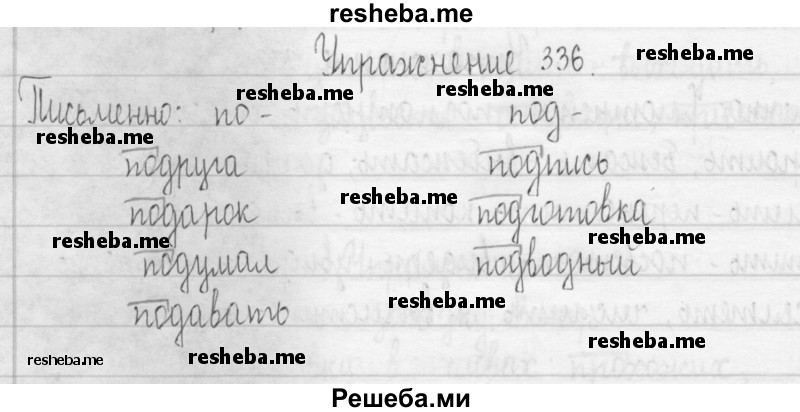 resheba.me
Упражнение 336. resheba.me
resheba.me resheba.me
Письменно: по- под-
resheba.me
подруга подпись
resheba.me
подарок подготовка
resheba.me resheba.me
подумал подводный
resheba.me
подавать
resheba.me
resheba.me resheba.me
Решеба.ми